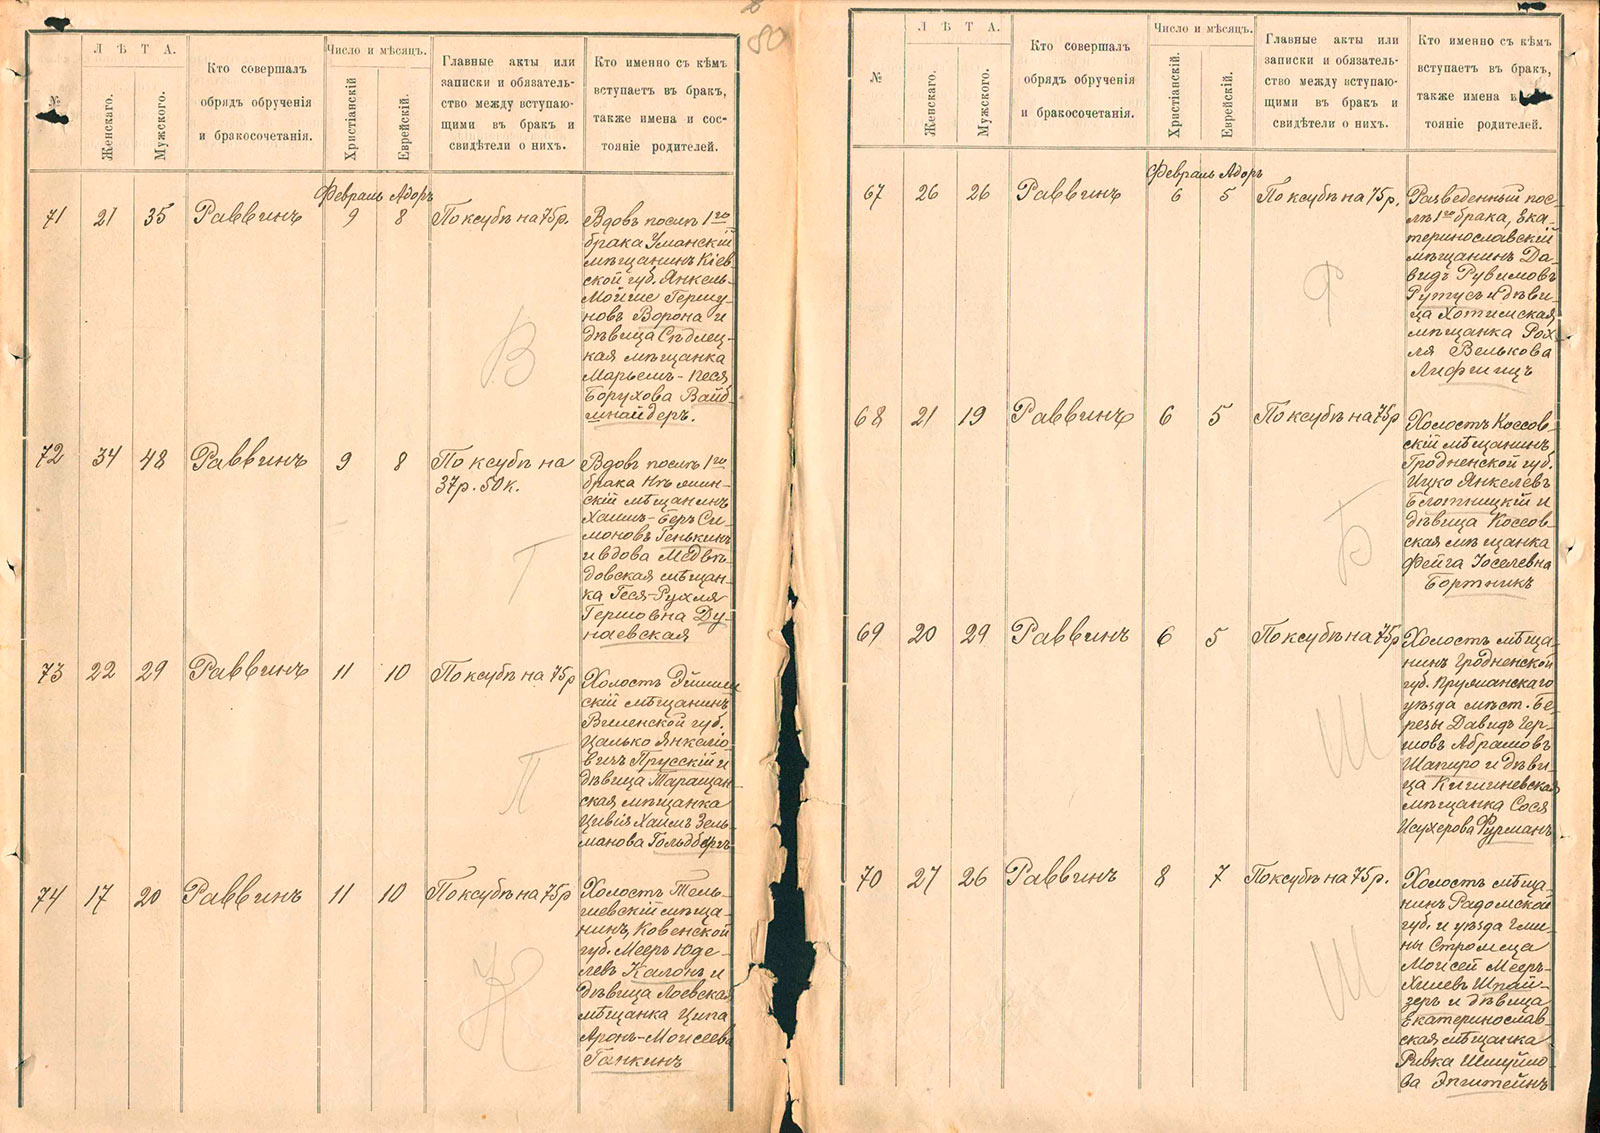 80
№
ЛѢТА.
Женскаго.
Мужского.
Кто совершалъ
обрядъ обрученія
и бракосочетанія.
Число и мѣсяцъ.
Христіанскій
Еврейскій.
Главные акты или
записки и обязатель-
ство между вступаю-
щими въ бракъ и
свидѣтели о нихъ.
Кто именно съ кѣмъ
вступаетъ въ бракъ,
также имена и сос-
тояніе родителей.
Февраль Адоръ
71 21 35 Раввинъ 9 8 По ксубѣ на 75р.
Вдовъ послѣ 1го
брака Уманскій
мѣщанинъ Кіев-
ской губ. Янкель-
Мойше Гершу-
новъ Ворона и
дѣвица Сѣдлец-
кая мѣщанка
Марьемъ-Песя
Борухова Вайс-
шнайдеръ.
В
72 34 48 Раввинъ 9 8 По ксубѣ на
37р. 50к.
Вдовъ послѣ 1го
брака
скій мѣщанинъ
Хаимъ-Беръ Си-
моновъ Генькинъ
и вдова Медвѣ-
довская мѣщан-
ка Геся-Рухля
Гершовна Ду-
наевская
Г
73 22 29 Раввинъ 11 10 По ксубѣ на 75р
Холостъ
скій мѣщанинъ
Виленской губ.
Цалько Янкеліо-
вичъ Прусскій и
дѣвица Таращан-
ская мѣщанка
Цивія Хаимъ Зель-
манова Гольдбергъ
П
74 17 20 Раввинъ 11 10 По ксубѣ на 75р
Холостъ Тель-
шевскій мѣща-
нинъ, Ковенской
губ. Мееръ Юде-
левъ Калонъ и
дѣвица Лоевская
мѣщанка Ципа
Аронъ-Моисеева
Ганкинъ
К
№
ЛѢТА.
Женскаго.
Мужского.
Кто совершалъ
обрядъ обрученія
и бракосочетанія.
Число и мѣсяцъ.
Христіанскій.
Еврейскій.
Главные акты или
записки и обязатель-
ство между вступаю-
щими въ бракъ и
свидѣтели о нихъ.
Кто именно съ кѣмъ
вступаетъ въ бракъ,
также имена и
тояніе родителей.
Февраль Адоръ
67 26 26 Раввинъ 6 5 По ксубѣ на 75р.
Разведенный пос-
лѣ 1го брака, Ека-
теринославскій
мѣщанинъ Да-
видъ Рувимовъ
Рутусъ и дѣви-
ца Хотимская,
мѣщанка Рох-
ля Велькова
Лифшицъ
Ф
68 21 19 Раввинъ 6 5 По ксубѣ на 75р
Холостъ Коссов-
скій мѣщанинъ,
Гродненской губ.
Ицко Янкелевъ
Блотницкій и
дѣвица Коссов-
ская мѣщанка
Фейга Іоселевна
Бортникъ
Б
69 20 29 Раввинъ 6 5 По ксубѣ на 75р
Холостъ мѣща-
нинъ Гродненской
губ. Пружанскаго
уѣзда мѣст. Бе-
резы Давидъ Гер-
шовъ Абрамовъ
Шапиро и дѣви-
ца Кишиневская
мѣщанка Сося
Исухерова Фурманъ
Ш
70 27 26 Раввинъ 8 7 По ксубѣ на 75р.
Холостъ мѣща-
нинъ Радомской
губ. и уѣзда Гми-
ны Стромеца
Моисей Мееръ-
Хилевъ Шпай-
зеръ и дѣвица
Екатеринослав-
ская мѣщанка
Ривка Шмуйло-
ва Эпштейнъ
Ш